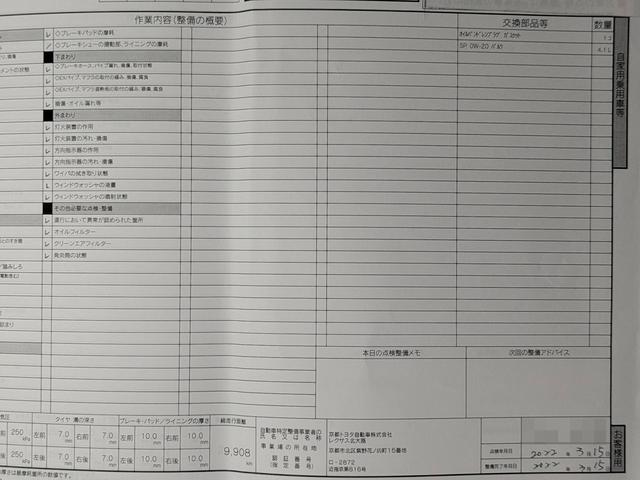 作業内容(整備の概要)
交換部品等
数量
◇ブレーキパッドの摩耗
◇ブレーキシューの摺動部、ライニングの摩耗
下まわり
◇ブレーキホース、パイプ漏れ、損傷、取付状態
◇EXパイプ、マフラの取付の緩み、損傷、腐食
損傷・オイル漏れ等
外まわり
灯火装置の作用
灯火装置の汚れ・損傷
方向指示器の作用
方向指示器の汚れ・損傷
ワイパの拭き取り状態
ウインドウォッシャの液量
ウインドウォッシャの噴射状態
その他必要な点検・整備
運行において異常が認められた箇所
オイルフィルター
クリーンエアフィルター
発炎筒の状態
オイルパンドレンプラグ ガスケット
1コ
SP 0W-20 バルク
4.1L
自家用乗用車等
本日の点検整備メモ
次回の整備アドバイス
タイヤ溝の深さ
ブレーキ・パッド/ライニングの厚さ
総走行距離
前 250 kPa 左前 7.0 mm 右前 7.0 mm 左前 10.0 mm 右前 10.0 mm
後 250 kPa 左後 7.0 mm 右後 7.0 mm 左後 10.0 mm 右後 10.0 mm
9,908
km
自動車特定整備事業者の
氏名又は名称
事業場の所在地
認証番号
(指定番号)
京都トヨタ自動車株式会社
レクサス北大路
京都市北区紫野花ノ坊町15番地
ロ-2872
近指京第816号
点検年月日 2022年 3月15日
整備完了年月日 2022年 3月15日
お客様用